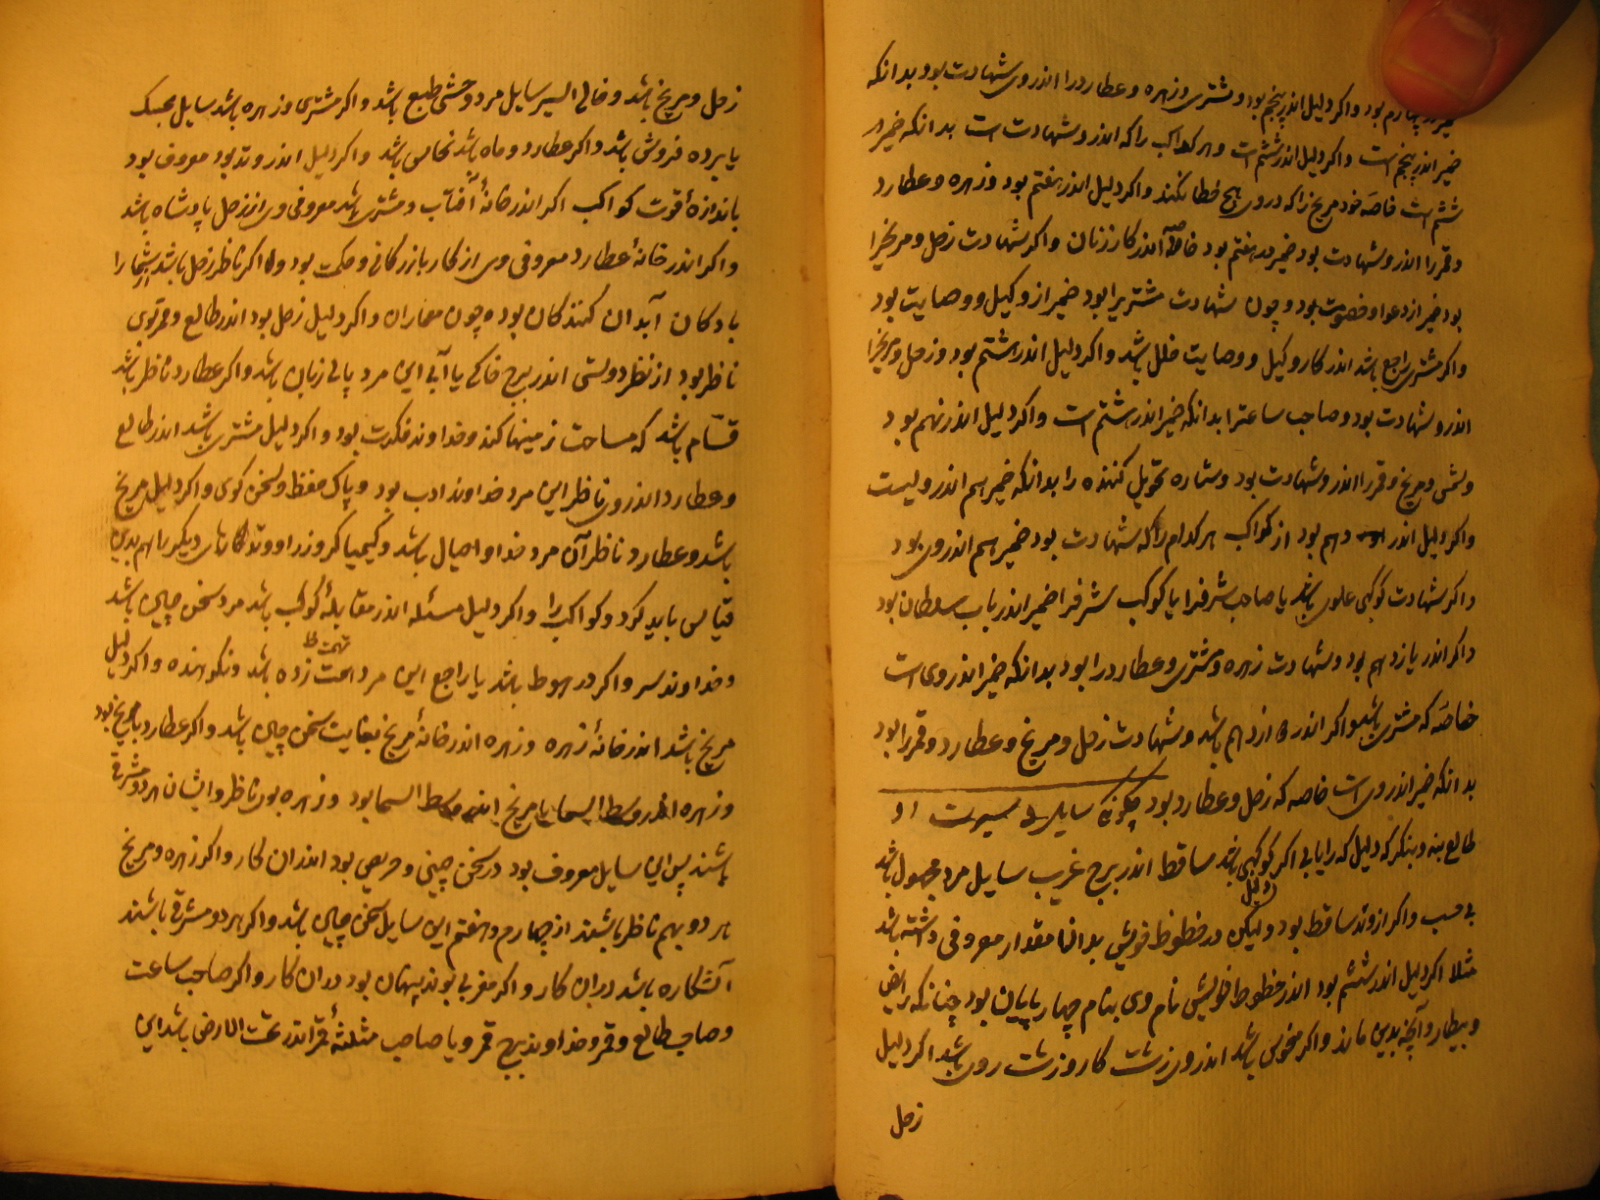 ضمیر در چهارم بود و اکر دلیل اندر پنجم بود و مشتری و زهره و عطارد را اندر وی شهادت بود بدانکه
ضمیر اندر پنجم است و اکر دلیل اندر ششم است و هر کواکب را که اندر و شهادت است بدانکه ضمیر در
ششم است خاصه خود مریخ را که در وی هیچ خطا نکند و اکر دلیل اندر هفتم بود و زهره و عطارد
و قمر را اندر و شهادت بود ضمیر در هفتم بود خاصّه اندر کار زنان و اکر شهادت زحل و مریخ را
بود ضمیر از دعوا و خصومت بود و چون شهادت مشتریرا بود ضمیر از وکیل و وصایت بود
و اکر مشتری راجع باشد اندر کار وکیل و وصایت خلل باشد و اکر دلیل اندر هشتم بود و زحل و مریخ را
اندر و شهادت بود و صاحب ساعترا بدانکه ضمیر اندر هشتم است و اکر دلیل اندر نهم بود
و شمس و مریخ و قمر را اندر و شهادت بود و ستاره تحویل کننده را بدانکه ضمیر هم اندر ویست
و اکر دلیل اندر دهم بود از کواکب هر کدام را که شهادت بود ضمیر هم اندر وی بود
و اکر شهادت کوکبی علوی باشد یا صاحب شرفرا یا کوکب شرفرا ضمیر اندر باب سلطان بود
و اکر اندر یازدهم بود و شهادت زهره و مشتری و عطارد را بود بدانکه ضمیر اندر وی است
خاصّه که مشتری باشد و اکر اندر دوازدهم باشد و شهادت زحل و مریخ و عطارد و قمر را بود
بدانکه ضمیر اندر وی است خاصه که زحل و عطارد بود چکونکی سایل و سیرت او
طالع بنه و بنکر که دلیل که را یابی اکر کوکبی باشد ساقط اندر برج غریب سایل مرد مجهول باشد
بی حسب و اکر از وتد ساقط بود ولیکن دلیل در خطوط خویش بدانها مقدار معروفی داشته باشد
مثلا اکر دلیل اندر ششم بود اندر خطوط خویش نام وی بنام چهارپایان بود چنانکه رایض
و بیطار و آنچه بدین ماند و اکر منحوس باشد اندر وی زشت کار و زشت روی باشد اکر دلیل
زحل
زحل و مریخ باشد و خالی السیر سایل مرد وحشی طبع باشد و اکر مشتری و زهره باشد سایل
یا برده فروش باشد و اکر عطارد و ماه باشد نخاس باشد و اکر دلیل اندر وتد بود معروف بود
باندازهٔ قوت کواکب اکر اندر خانهٔ آفتاب و مشتری باشد معروفی وی از نزد پادشاه باشد
و اکر اندر خانهٔ عطارد معروفی وی از کار بازرکانی و حکمت بود و اکر ناظر زحل باشد
یا دکان آبدان کنندکان بود و چون معماران و اکر دلیل زحل بود اندر طالع و قمر بوی
ناظر بود از نظر دوستی اندر برج خاکی یا آبی این مرد باشد و اکر عطارد ناظر باشد
قسّام باشد که مساحت زمینها کند و خداوند فکرت بود و اکر دلیل مشتری باشد اندر طالع
و عطارد اندر وی ناظر این مرد خداوند ادب بود و پاک حفظ و سخن کوی و اکر دلیل مریخ
باشد و عطارد ناظر آن مرد خداوند حیال باشد و کیمیاکر و زر او وتدکارهای دیکر را هم بدین
قیاس باید کرد و کواکب را و اکر دلیل مسئله اندر مقابلهٔ کوکب باشد مرد سخن چین باشد
و خداوند سر و اکر در هبوط باشد یا راجع این مرد تهمت زده باشد و نکوهنده و اکر دلیل
مریخ باشد اندر خانهٔ زهره و زهره اندر خانهٔ مریخ بغایت سخن چین باشد و اکر عطارد با مریخ بود
و زهره اندر وسط السما یا مریخ اندر وسط السما بود و زهره بود ناظر و ایشان هر دو مشرقی
باشند پس این سایل معروف بود در سخن چینی و حریص بود اندران کار و اکر زهره و مریخ
هر دو بهم ناظر باشند از چهارم و هفتم این سایل سخن چین باشد و اکر هر دو مشرقی باشند
آشکاره باشد در این کار و اکر مغربی بوند پنهان بود در ان کار و اکر صاحب ساعت
و صاحب طالع و قمر و خداوند برج قمر و یا صاحب مثلثهٔ قمر اندر تحت الارض باشد این